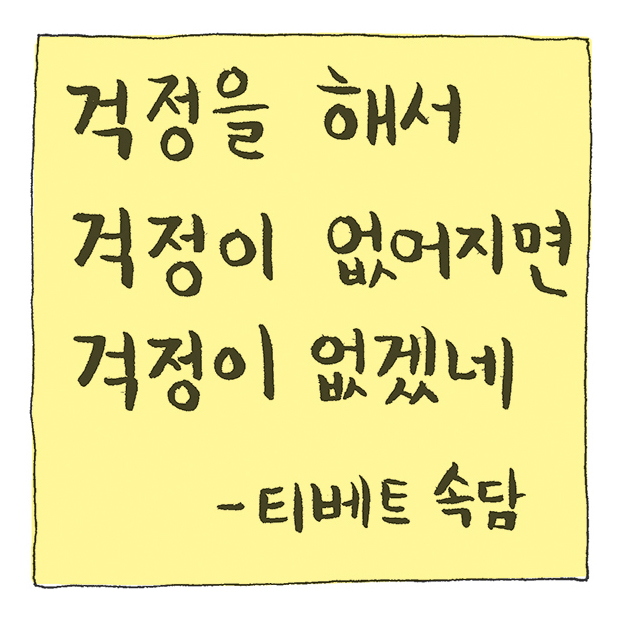 걱정을 해서
걱정이 없어지면
걱정이 없겠네
-티베트 속담